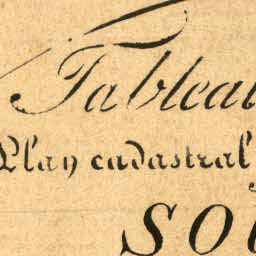 Tableau
Plan cadastral
SOU